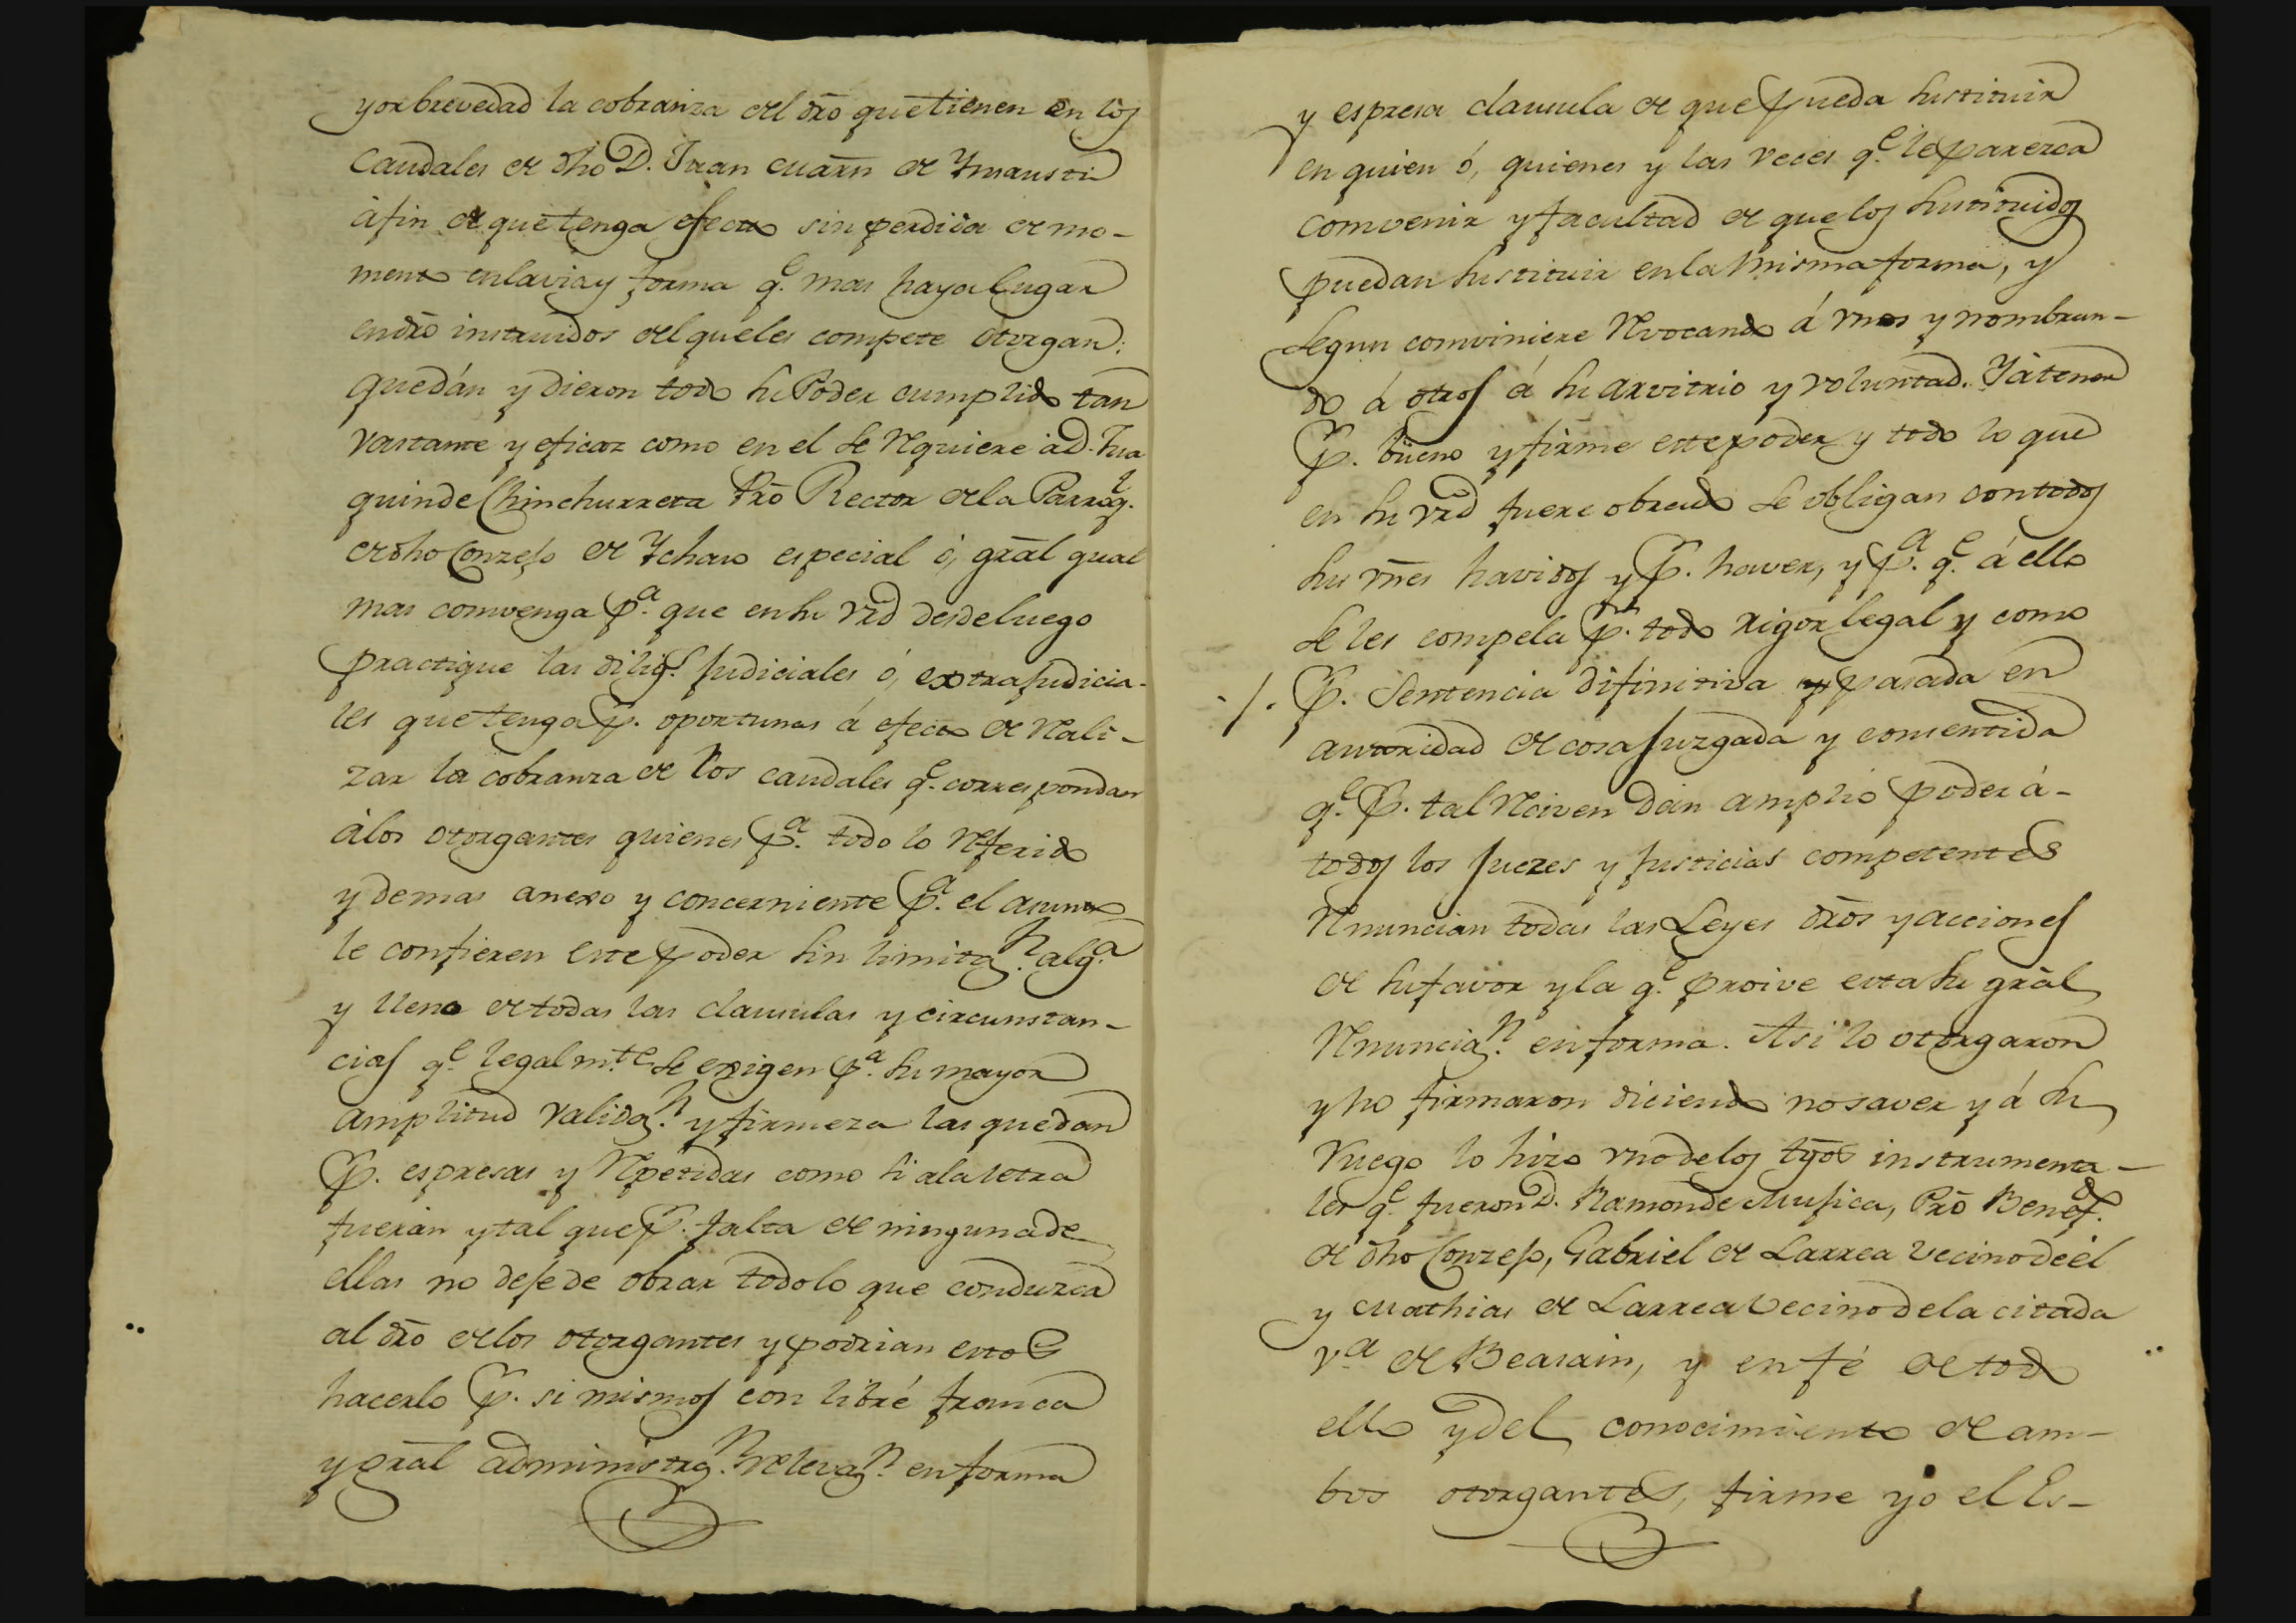 yor brevedad la cobranza del dr̄o que tienen en los
caudales de dho D. Juan Marn̄ de Ynsausti
á fin de que tenga efecto sin perdida de mo-
mento en la via y forma q.e mas haya lugar
en dr̄o instruidos del que les compete otorgan:
que dán y dieron todo su Poder cumplido tan
vastante y eficaz como en el se requiere á D. Jua
quin de Chinchurreta Pr̄o Rector de la Parroq.l
de dho Conzejo de Ychaso especial ó, grāl qual
mas comvenga p.a que en su vr̄d desde luego
practique las dilig.s Judiciales ó, extrajudicia-
les que tenga p.r oportunas á efecto de reali-
zar la cobranza de los caudales q.e correspondan
á los otorgantes quienes p.a todo lo referido
y demas anexo y concerniente p.a el asunto
le confieren este poder sin limitaz.n alg.a
y lleno de todas las clausulas y circunstan-
cias q.e legalm.te se exigen p.a su mayor
amplitud validaz.n y firmeza las que dan
p.r espresas y repetidas como si ala letra
fueran y tal que p.r falta de ninguna de
ellas no deje de obrar todo lo que conduzca
al dr̄o de los otorgantes y podrian estos
hacerlo p.r si mismos con libre franca
y grāl administraz.n relevaz.n en forma
y espresa clausula de que pueda sustituir
en quien ó, quienes y las veces q.e le parezca
comvenir y facultad de que los sustituidos
puedan sustituir en la misma forma, y
segun comviniere revocando á unos y nombran-
do á otros á su arvitrio y voluntad. Y á tener
p.r bueno y firme este poder y todo lo que
en su vr̄d fuere obrado se obligan con todos
sus vn̄es havidos y p.r haver, y p.a q.e á ello
se les compela p.r todo rigor legal y como
p.r Sentencia difinitiva pasada en
autoridad de cosa Juzgada y consentida
q.e p.r tal reciven dán amplio poder á-
todos los Juezes y Justicias competentes
renuncian todas las Leyes dr̄os y acciones
de su favor y la q.e proive esta su grāl
renunciaz.n en forma. Asi lo otorgaron
y no firmaron diciendo no saver y á su
ruego lo hizo uno de los tgōs instrumenta-
les q.e fueron D. Ramon de Mujica, Pr̄o Benef.do
de dho Conzejo, Gabriel de Larrea vecino de él
y Mathias de Larrea vecino de la citada
v.a de Beasain, y en fé de todo
ello y del conocimiento de am-
bos otorgantes, firme yo el Es-